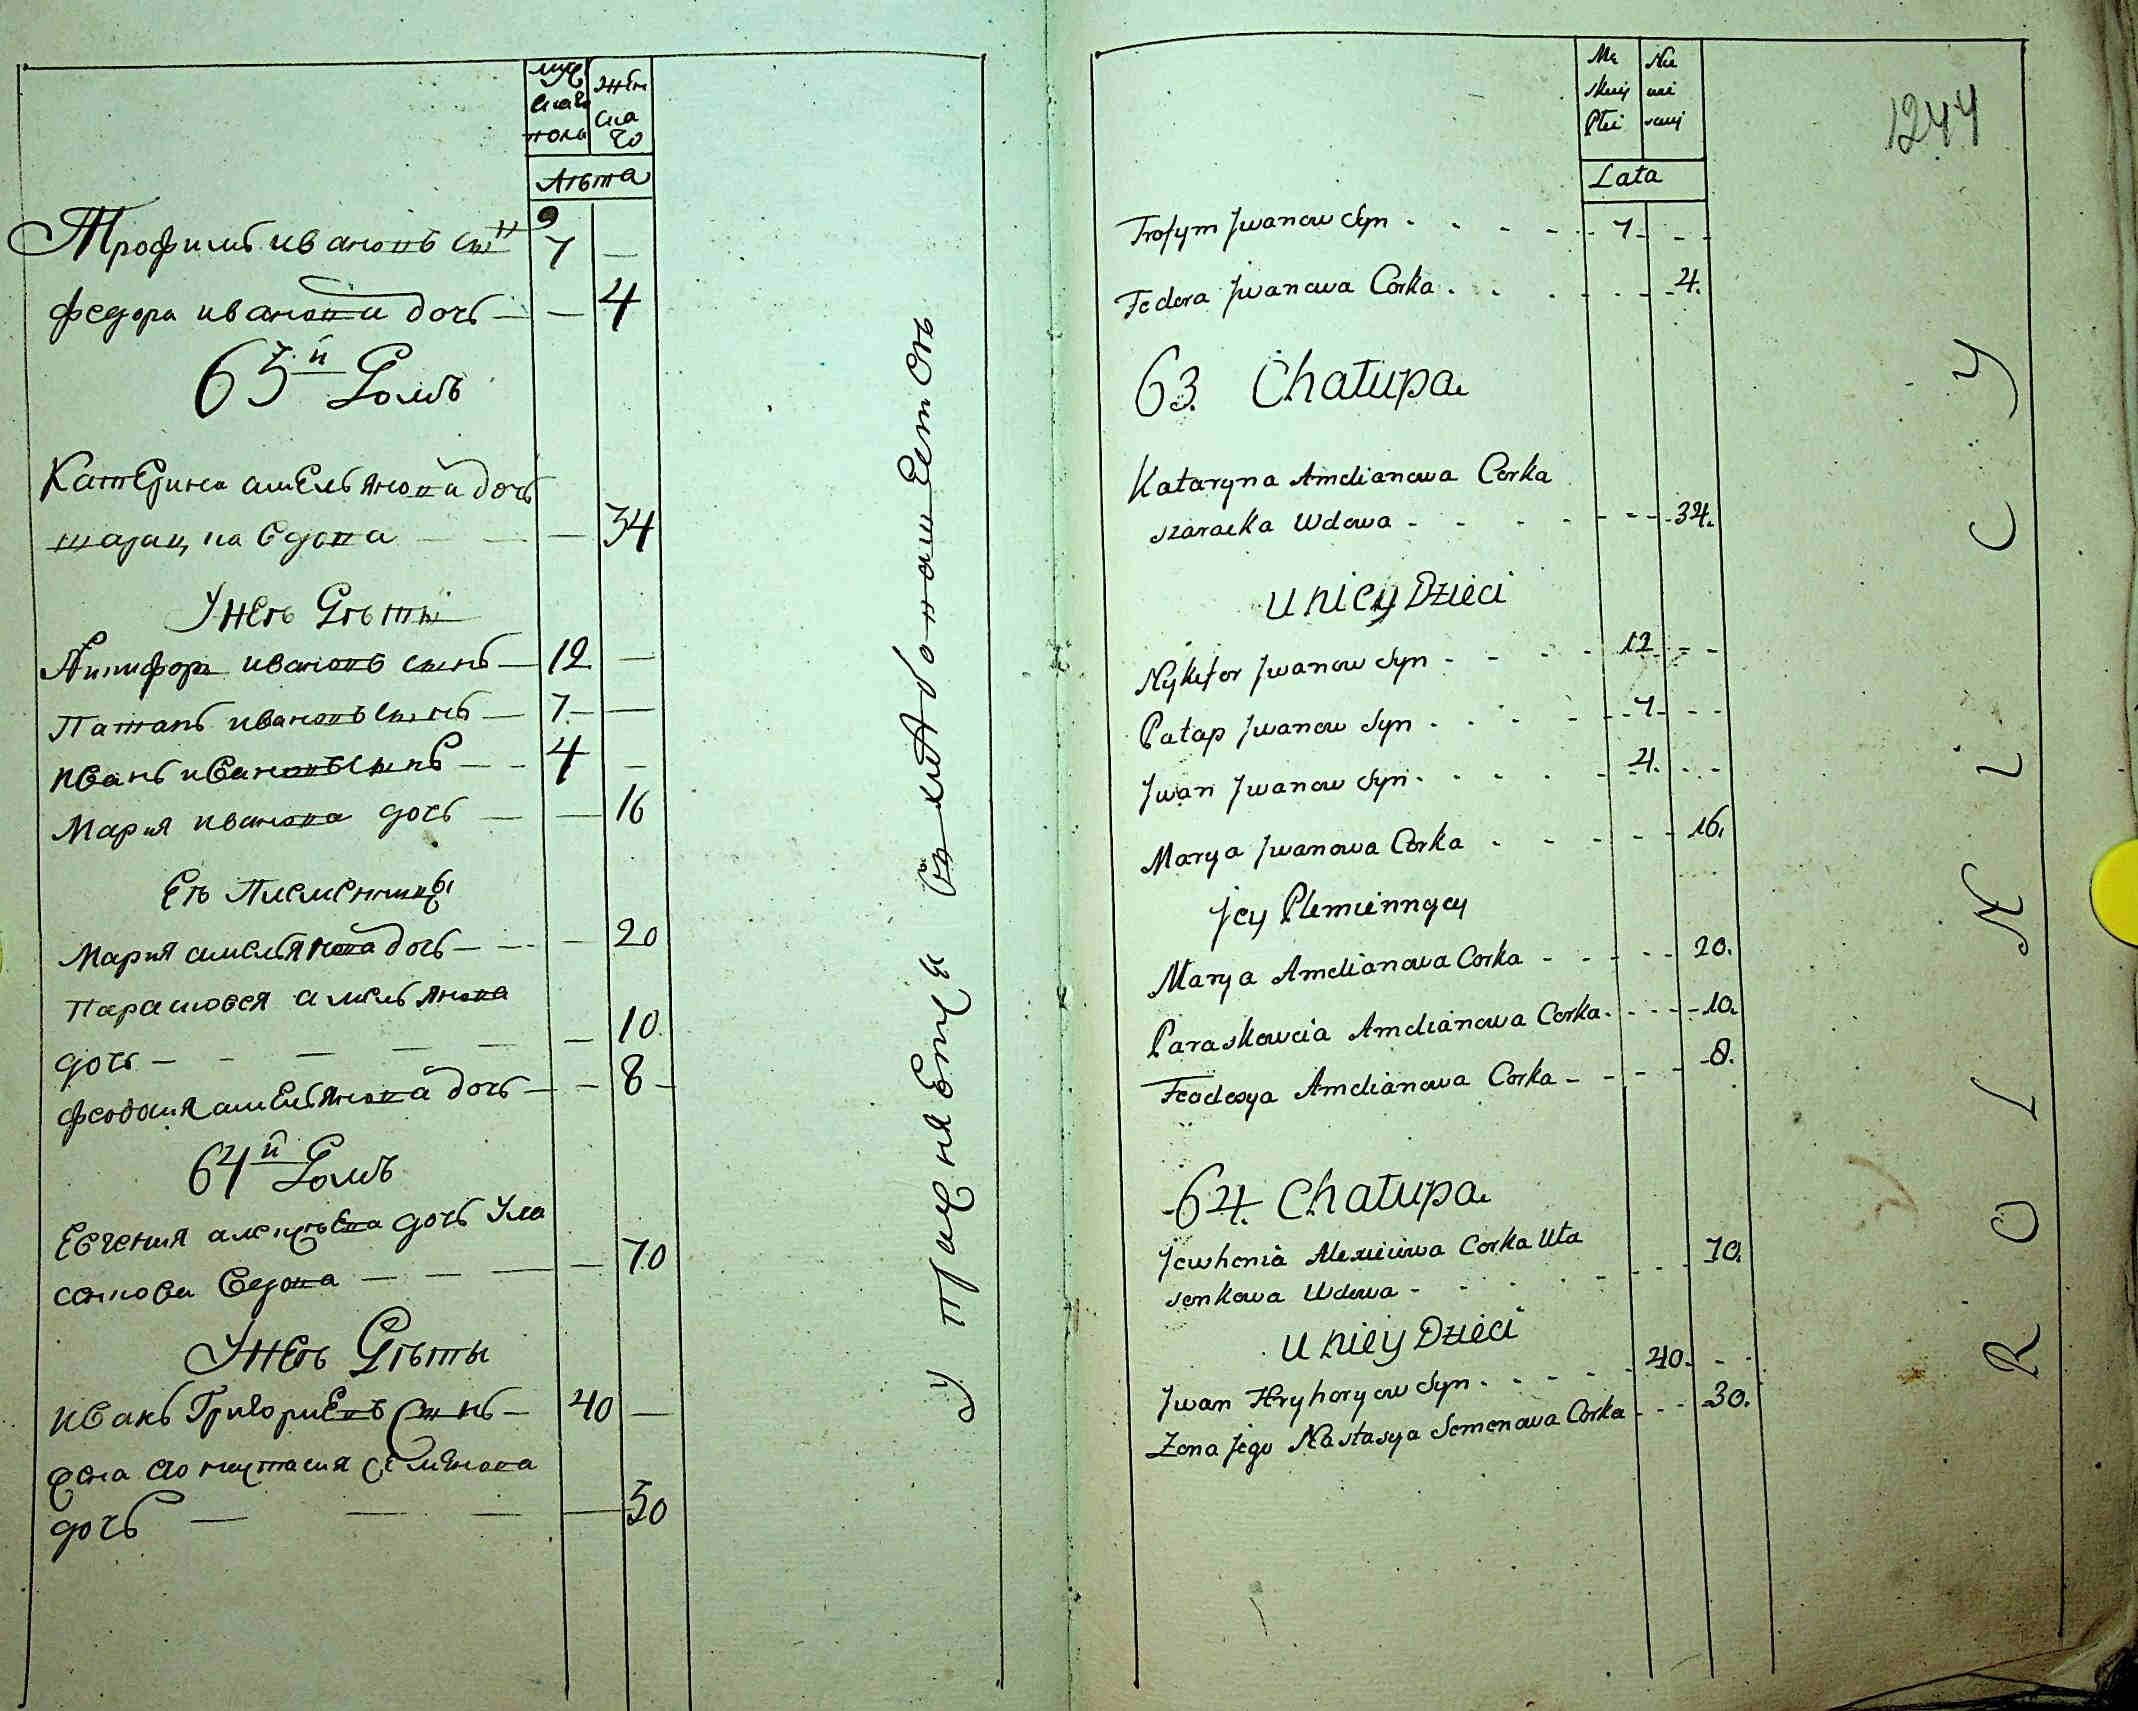 муж
скаго
пола
жен
ска
го
Лѣта
Трофимъ ивановъ сынъ 7 —
федора иванова дочь — — 4
63й Домъ
Катерина амельянова дочь
шарацка вдова — — — 34
У неѣ Дѣти
Никифоръ ивановъ сынъ — 12 —
Патапъ ивановъ сынъ — 7 — —
иванъ ивановъ сынъ — — 4 —
Мария иванова дочь — — 16
Еѣ Племенницы
Мария амельянова дочь — — — 20
Парасковея амельянова
дочь — — — — — — 10
феодосия амельянова дочь — — 8 —
64й Домъ
Евгения алексѣева дочь Ула
сенкова вдова — — — — 70
У неѣ Дѣти
иванъ Григориевъ Сынъ — 40 —
жена его настасия семенова
дочь — — — — 30
Mę
skiey
Płci
Nie
wie
sciey
Lata
1244
Trofym Jwanow Syn . . . . 7. - -
Fedora Jwanowa Corka . . . . . . 4.
63. Chałupa
Kataryna Amelianowa Corka
szaracka Wdowa - - - - - - - 34.
u Niey Dzieci
Nykifor Jwanow Syn . - - - 12 - -
Patap Jwanow Syn . . . . - 7. - -
Jwan Jwanow Syn . . . . . 4. - -
Marya Jwanowa Corka . - - - - 16.
Jey Plemiennycy
Marya Amelianowa Corka - - - - 20.
Paraskoweia Amelianowa Corka . - - - 10.
Feodosya Amelianowa Corka - - - - 8.
64. Chałupa
Jewhenia Alexieiowa Corka Uła
senkowa Wdowa - - - - - - 70.
u Niey Dzieci
Jwan Hryhoryow Syn . - - - 40. - -
Zona Jego Nastasya Semenowa Corka - - - 30.
ROLNICY